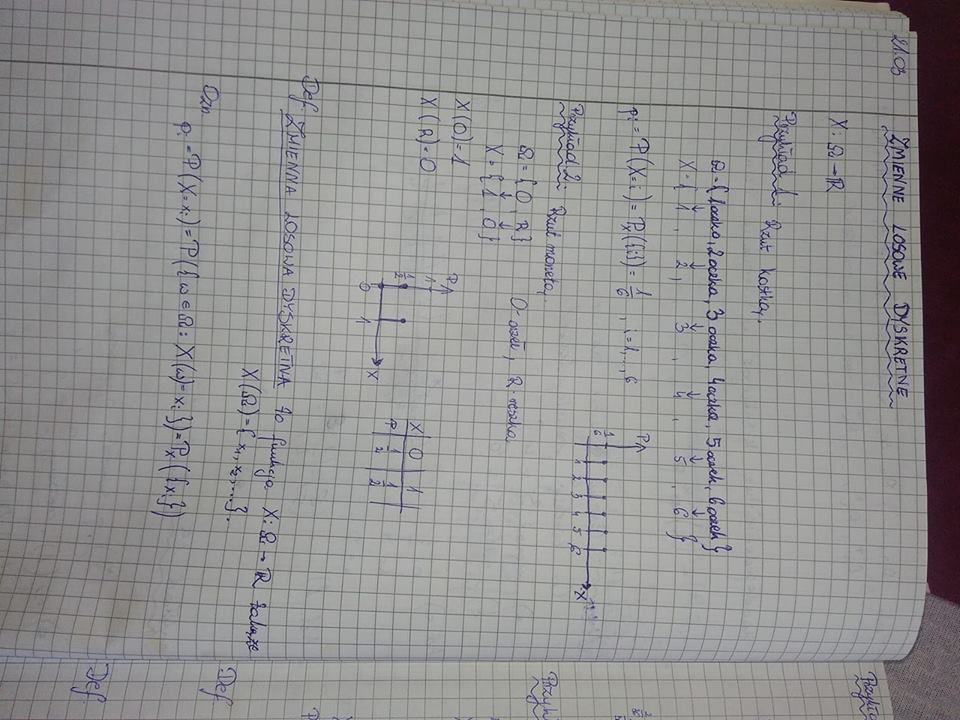 21.03 ZMIENNE LOSOWE DYSKRETNE
X: Ω → R
Przykład 1. Rzut kostką.
Ω = {1 oczko, 2 oczka, 3 oczka, 4 oczka, 5 oczek, 6 oczek}
↓ ↓ ↓ ↓ ↓ ↓
X = { 1 , 2 , 3 , 4 , 5 , 6 }
pi = P(X=i) = Px({i}) = 1/6 , i=1,...,6
P
1/6
1 2 3 4 5 6 X
Przykład 2. Rzut monetą.
Ω = {O, R} O-orzeł, R-reszka
↓ ↓
X = {1, 0}
X(O)=1
X(R)=0
P
1
1/2
0 1 X
X 0 1
P 1/2 1/2
Def. ZMIENNA LOSOWA DYSKRETNA to funkcja X: Ω → R taka, że
X(Ω) = { x1, x2, ... }.
Ozn.
pi = P(X=xi) = P({ω ∈ Ω : X(ω)=xi}) = Px({xi})
Przykła
Przykł
Def
Def